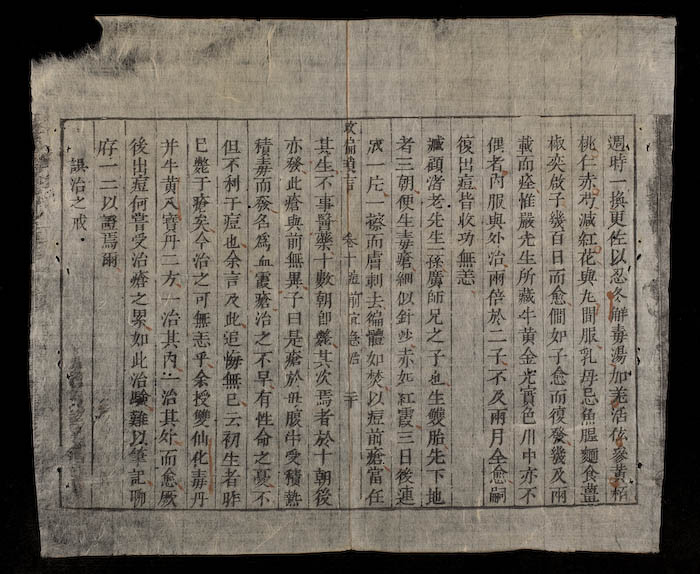 週時一換更佐以忍冬解毒湯加羌活佐參黃柏
桃仁赤芍減紅花與九間服乳母忌魚腥麵食薑
椒夾啟子幾百日而愈側如子愈而復發幾及兩
載而痊惟嚴先生所藏牛黃金光寶色川中亦不
偶者內服與外治兩倍於二子不及兩月全愈嗣
復出痘皆收功無恙
臧顧渚老先生孫廣師兄之子也生雙胎先下地
者三朝便生毒瘡細似針沙赤如紅霞三日後連
成一片一擦而膚刺去徧體如焚以痘前瘡當任
救偏瑣言 卷十 痘前宜急治 二十
其生不事醫藥十數朝即斃其次焉者於十朝後
亦發此瘡與前無異予曰是瘡於母腹中受積熱
積毒而發名為血霞瘡治之不早有性命之憂不
但不利于痘也余言及此追悔無已云初生者昨
已斃于瘡矣今治之可無恙乎余授變仙化毒丹
并牛黃八寶丹二方一治其內一治其外而愈厥
後出痘何嘗受治瘡之累如此治驗難以筆記聊
府一二以證焉爾
誤治之戒